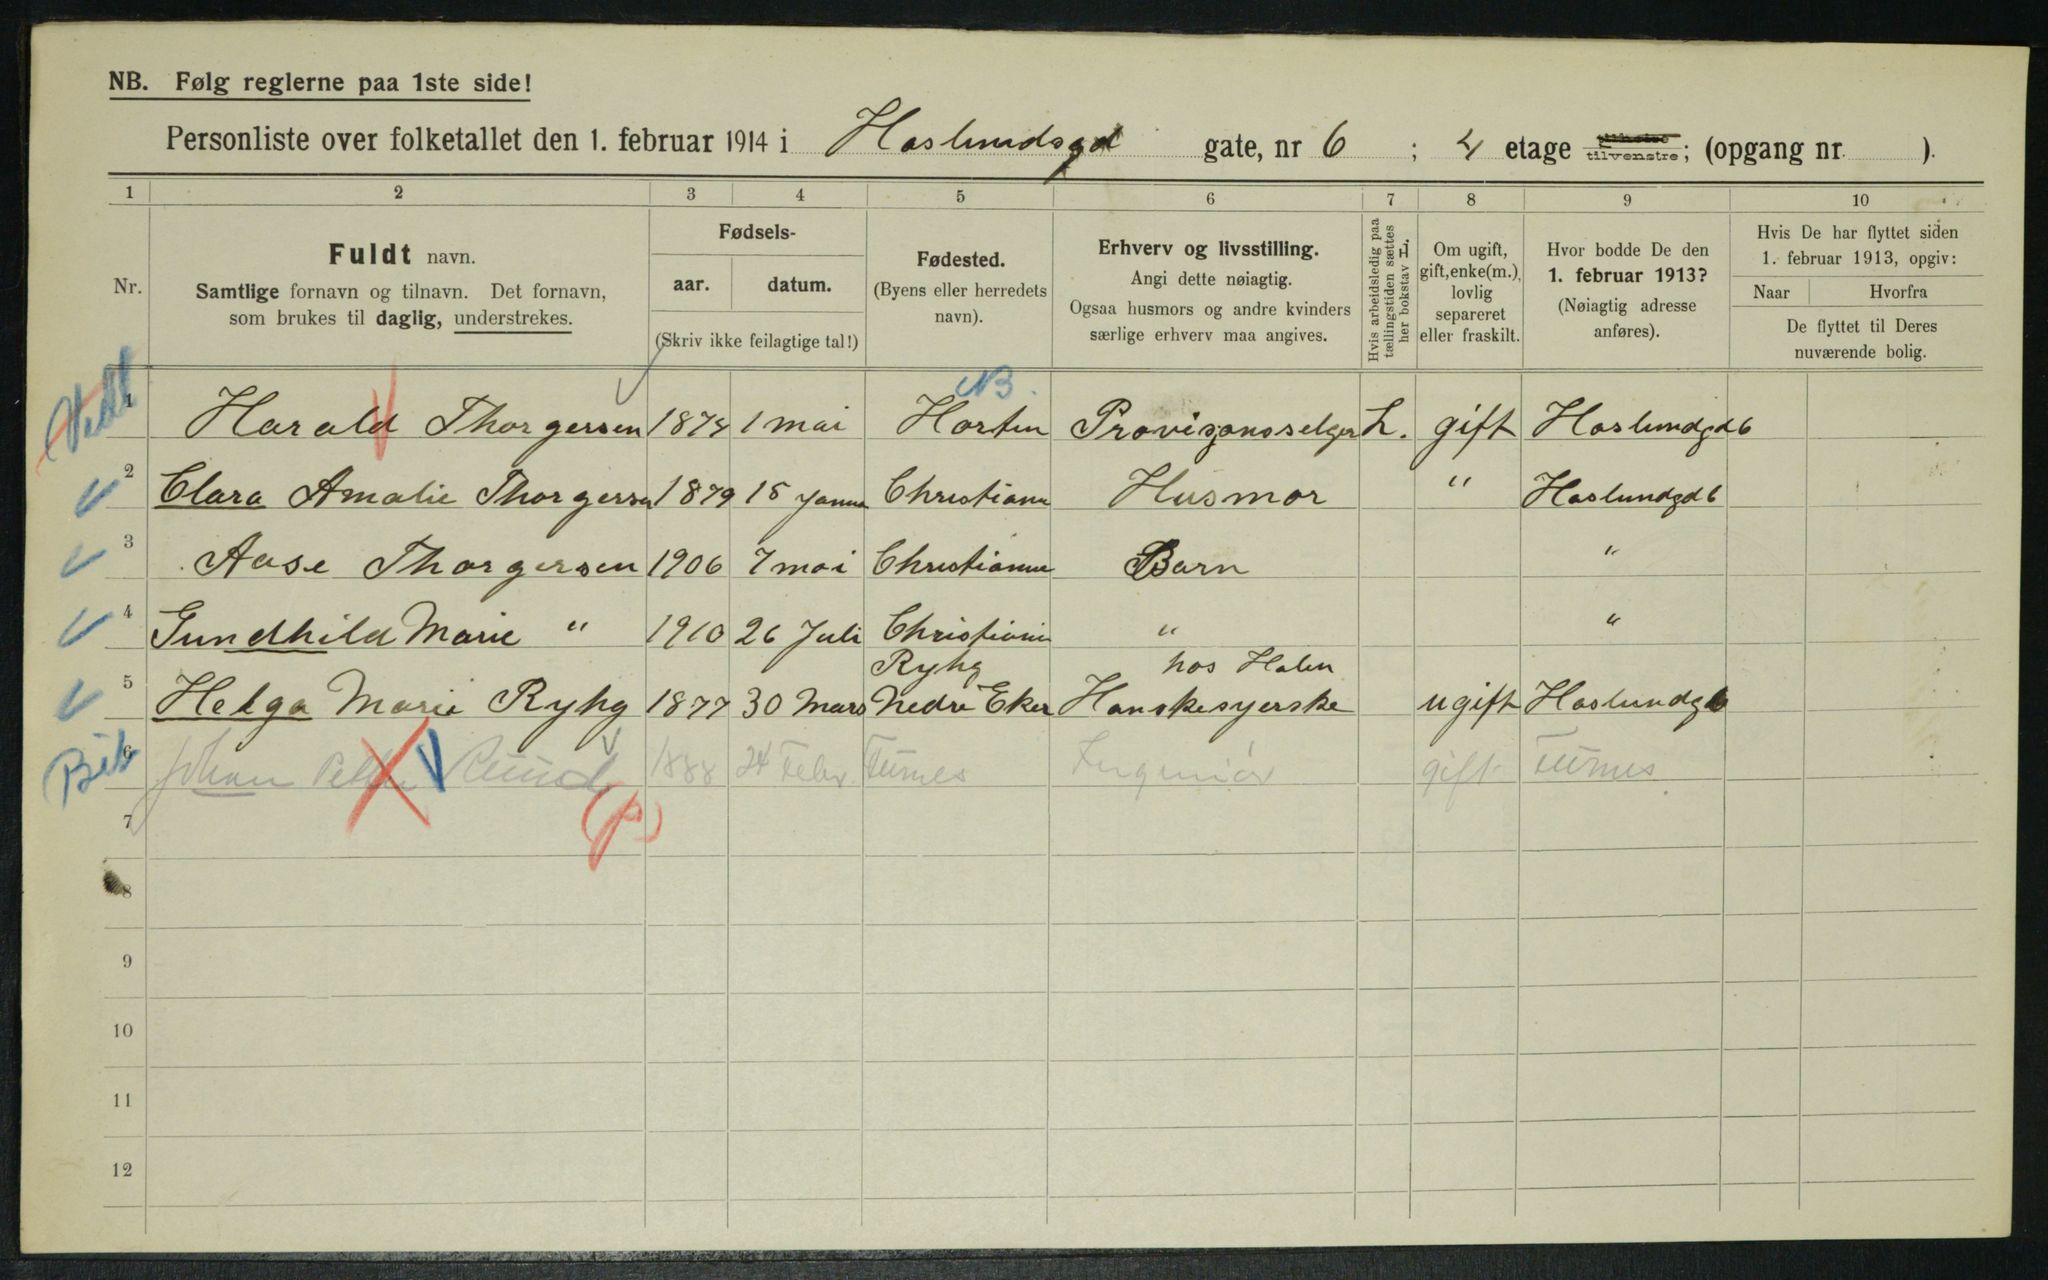 NB. Følg reglerne paa 1ste side!
Personliste over folketallet den 1. februar 1914 i Haslundsgd gate, nr 6 ; 4 etage tilhøire tilvenstre; (opgang nr. ).
1 2 3 4 5 6 7 8 9 10
Nr.
Fuldt navn.
Samtlige fornavn og tilnavn. Det fornavn,
som brukes til daglig, understrekes.
Fødsels-
aar. datum.
(Skriv ikke feilagtige tal!)
Fødested.
(Byens eller herredets
navn).
Erhverv og livsstilling.
Angi dette nøiagtig.
Ogsaa husmors og andre kvinders
særlige erhverv maa angives.
Hvis arbeidsledig paa
tællingstiden sættes
her bokstav L.
Om ugift,
gift, enke(m.),
lovlig
separeret
eller fraskilt.
Hvor bodde De den
1. februar 1913?
(Nøiagtig adresse
anføres).
Hvis De har flyttet siden
1. februar 1913, opgiv:
Naar Hvorfra
De flyttet til Deres
nuværende bolig.
NB.
1 Harald Thorgersen 1 mai Horten Provisjonsselger L. gift Haslundgd 6
2 Clara Amalie Thorgersen 1879 15 Janua Christiania Husmor " Haslundgd 6
3 Aase Thorgersen 1906 7 mai Christiania Barn "
4 Gundhild Marie " 1910 26 Juli Christiania " "
Ryhg hos Halen
5 Helga Marie Ryhg 1877 30 Mars Nedre Eker Hanskesyerske ugift Haslundg 6
6 Johan Petter Ruud 1888 24 Febr. Furnes Ingeniør gift Furnes
(p)
7
8
9
10
11
12